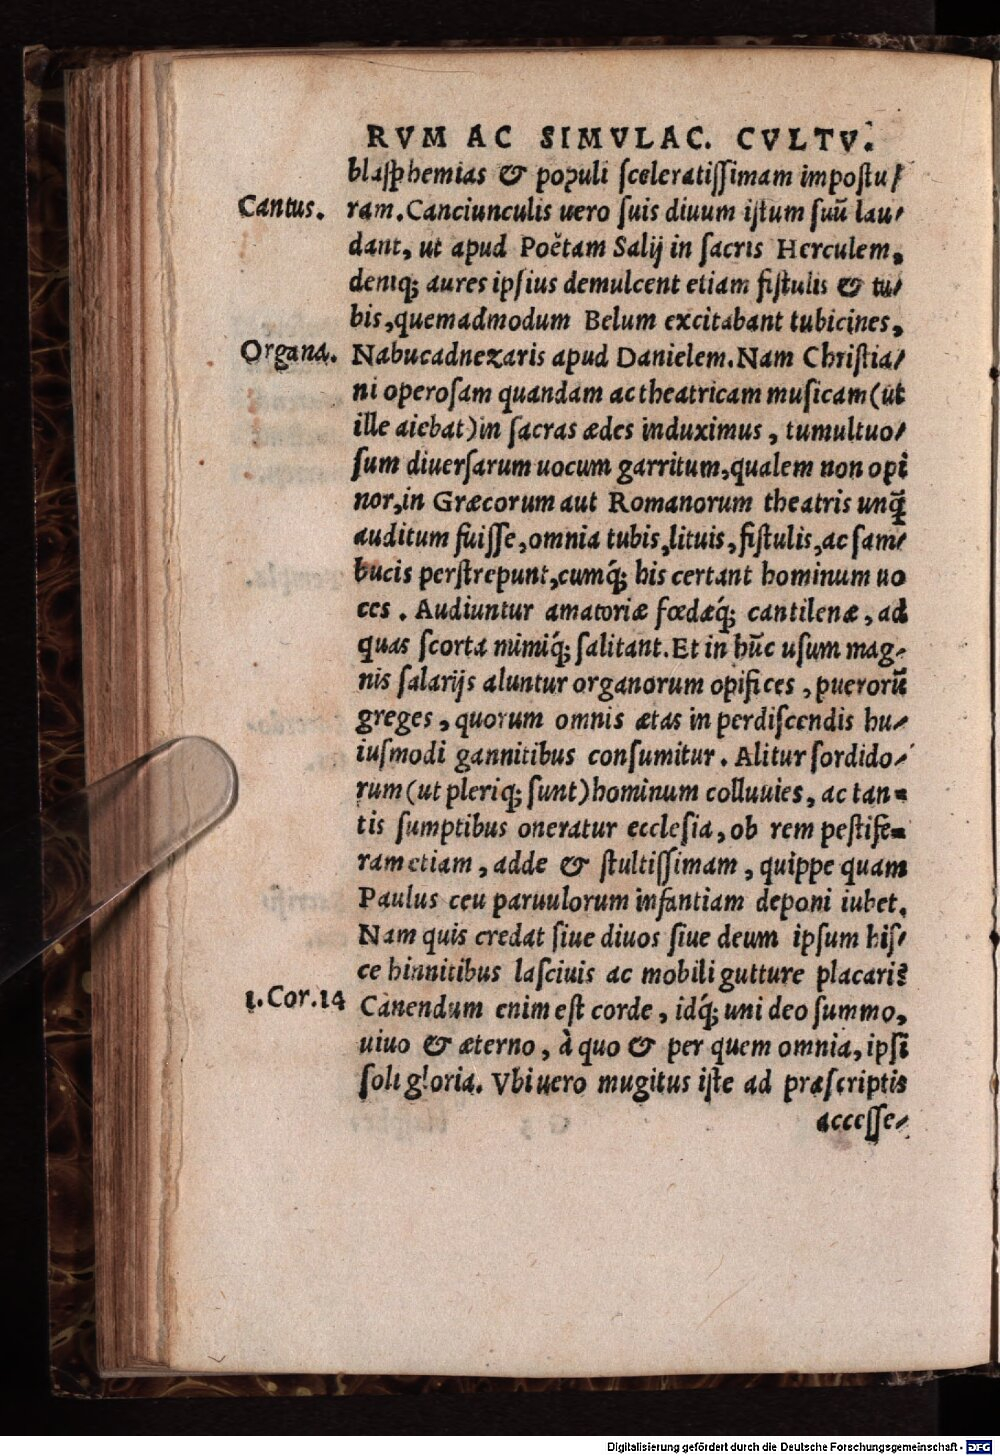 RVM AC SIMVLAC. CVLTV.
blasphemias & populi sceleratissimam impostu/
Cantus.
ram. Canciunculis uero suis diuum istum suũ lau/
dant, ut apud Poëtam Salij in sacris Herculem,
deniq; aures ipsius demulcent etiam fistulis & tu/
bis, quemadmodum Belum excitabant tubicines,
Organa.
Nabucadnezaris apud Danielem. Nam Christia/
ni operosam quandam ac theatricam musicam (ut
ille aiebat) in sacras ædes induximus, tumultuo/
sum diuersarum uocum garritum, qualem non opi
nor, in Græcorum aut Romanorum theatris unq̃
auditum fuisse, omnia tubis, lituis, fistulis, ac sam/
bucis perstrepunt, cumq́; his certant hominum uo
ces. Audiuntur amatoriæ fœdæq́; cantilenæ, ad
quas scorta mimiq́; salitant. Et in hũc usum mag/
nis salarijs aluntur organorum opifices, puerorũ
greges, quorum omnis ætas in perdiscendis hu/
iusmodi gannitibus consumitur. Alitur sordido/
rum (ut pleriq; sunt) hominum colluuies, ac tan=
tis sumptibus oneratur ecclesia, ob rem pestife=
ram etiam, adde & stultissimam, quippe quam
Paulus ceu paruulorum infantiam deponi iubet.
Nam quis credat siue diuos siue deum ipsum his/
ce hinnitibus lasciuis ac mobili gutture placari?
1. Cor. 14
Canendum enim est corde, idq́; uni deo summo,
uiuo & æterno, à quo & per quem omnia, ipsi
soli gloria. Vbi uero mugitus iste ad præscriptis
accesse/
Digitalisierung gefördert durch die Deutsche Forschungsgemeinschaft - DFG